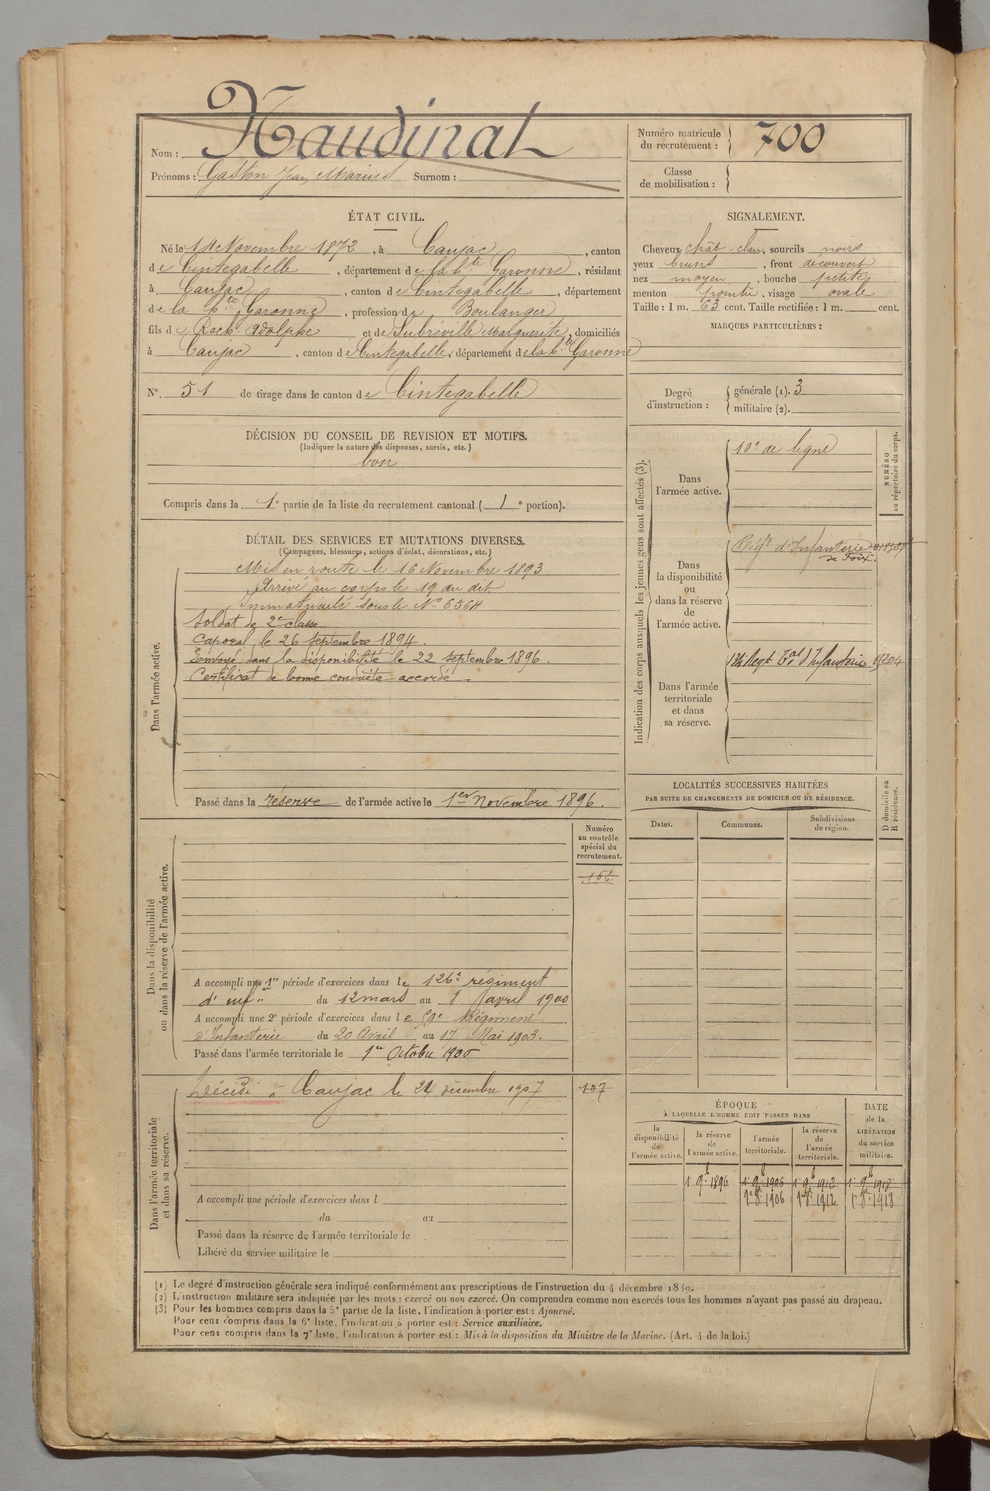 Nom : Naudinat
Prénoms : Gaston Jean Marius Surnom :
Numéro matricule du recrutement : 700
Classe de mobilisation :
ÉTAT CIVIL.
Né le 11 Novembre 1872, à Caujac, canton
de Cintegabelle, département de la hte Garonne, résidant
à Caujac, canton de Cintegabelle, département
de la hte Garonne, profession de Boulanger
fils de Adolphe et de Marguerite, domiciliés
à Caujac, canton de Cintegabelle, département de la hte Garonne
No. 51 de tirage dans le canton de Cintegabelle
SIGNALEMENT.
Cheveux chât-clair, sourcils noirs
yeux bruns, front découvert
nez moyen, bouche petite
menton pointu, visage ovale
Taille : 1 m. 63 cent. Taille rectifiée : 1 m. cent.
MARQUES PARTICULIÈRES :
Degré d'instruction : générale (1). 3
militaire (2).
DÉCISION DU CONSEIL DE REVISION ET MOTIFS.
(Indiquer la nature des dispenses, sursis, etc.)
bon
Compris dans la 1e partie de la liste du recrutement cantonal ( 1e portion).
DÉTAIL DES SERVICES ET MUTATIONS DIVERSES.
(Campagnes, blessures, actions d'éclat, décorations, etc.)
Dans l'armée active.
Mis en route le 16 Novembre 1893
Arrivé au corps le 19 du dit
Immatriculé sous le No 6564
Soldat de 2e classe
Caporal le 26 septembre 1894.
Envoyé dans la disponibilité le 22 septembre 1896.
Certificat de bonne conduite accordé.
Passé dans la réserve de l'armée active le 1er Novembre 1896.
Indication des corps auxquels les jeunes gens sont affectés (3).
NUMÉRO au répertoire du corps.
Dans l'armée active.
10e de ligne
Dans la disponibilité ou dans la réserve de l'armée active.
Régt d'Infanterie
de Foix.
Dans l'armée territoriale et dans sa réserve.
Regt Tal d'Infanterie
LOCALITÉS SUCCESSIVES HABITÉES
PAR SUITE DE CHANGEMENTS DE DOMICILE OU DE RÉSIDENCE.
D domicile ou R résidence.
Dates. Communes. Subdivisions de région.
Dans la disponibilité ou dans la réserve de l'armée active.
Numéro au contrôle spécial du recrutement.
162
A accompli une 1re période d'exercices dans le 126e régiment
d'inf. du 12 mars au 8 avril 1900
A accompli une 2e période d'exercices dans le 59e Régiment
d'Infanterie du 20 Avril au 17 Mai 1903.
Passé dans l'armée territoriale le 1er Octobre 1906
Dans l'armée territoriale et dans sa réserve.
Décédé à Caujac le 24 décembre 1907
107
A accompli une période d'exercices dans l
du au
Passé dans la réserve de l'armée territoriale le
Libéré du service militaire le
ÉPOQUE
À LAQUELLE L'HOMME DOIT PASSER DANS
la disponibilité de l'armée active. la réserve de l'armée active. l'armée territoriale. la réserve de l'armée territoriale.
DATE de la LIBÉRATION du service militaire.
1er 9bre 1896 1er 9bre 1906 1er 9bre 1912 1er 9bre 1918
1er 8bre 1906 1er 8bre 1912 1er 8bre 1918
(1) Le degré d'instruction générale sera indiqué conformément aux prescriptions de l'instruction du 4 décembre 1889.
(2) L'instruction militaire sera indiquée par les mots : exercé ou non exercé. On comprendra comme non exercés tous les hommes n'ayant pas passé au drapeau.
(3) Pour les hommes compris dans la 5e partie de la liste, l'indication à porter est : Ajourné.
Pour ceux compris dans la 6e liste, l'indication à porter est : Service auxiliaire.
Pour ceux compris dans la 7e liste, l'indication à porter est : Mis à la disposition du Ministre de la Marine. (Art. 4 de la loi.)